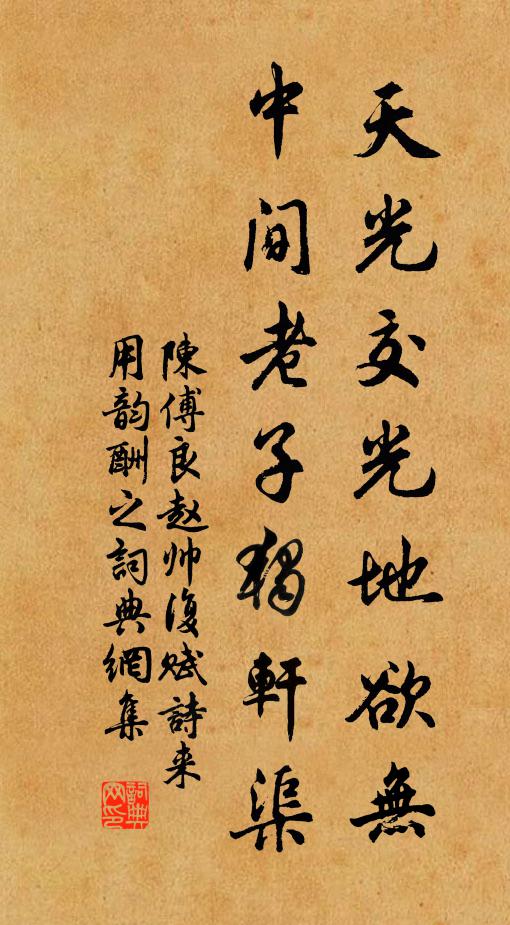 天光交光地欲無
中间老子獨軒渠
陳傅良赵帅復赋詩来
用韵酬之詞典網集
詞典网印